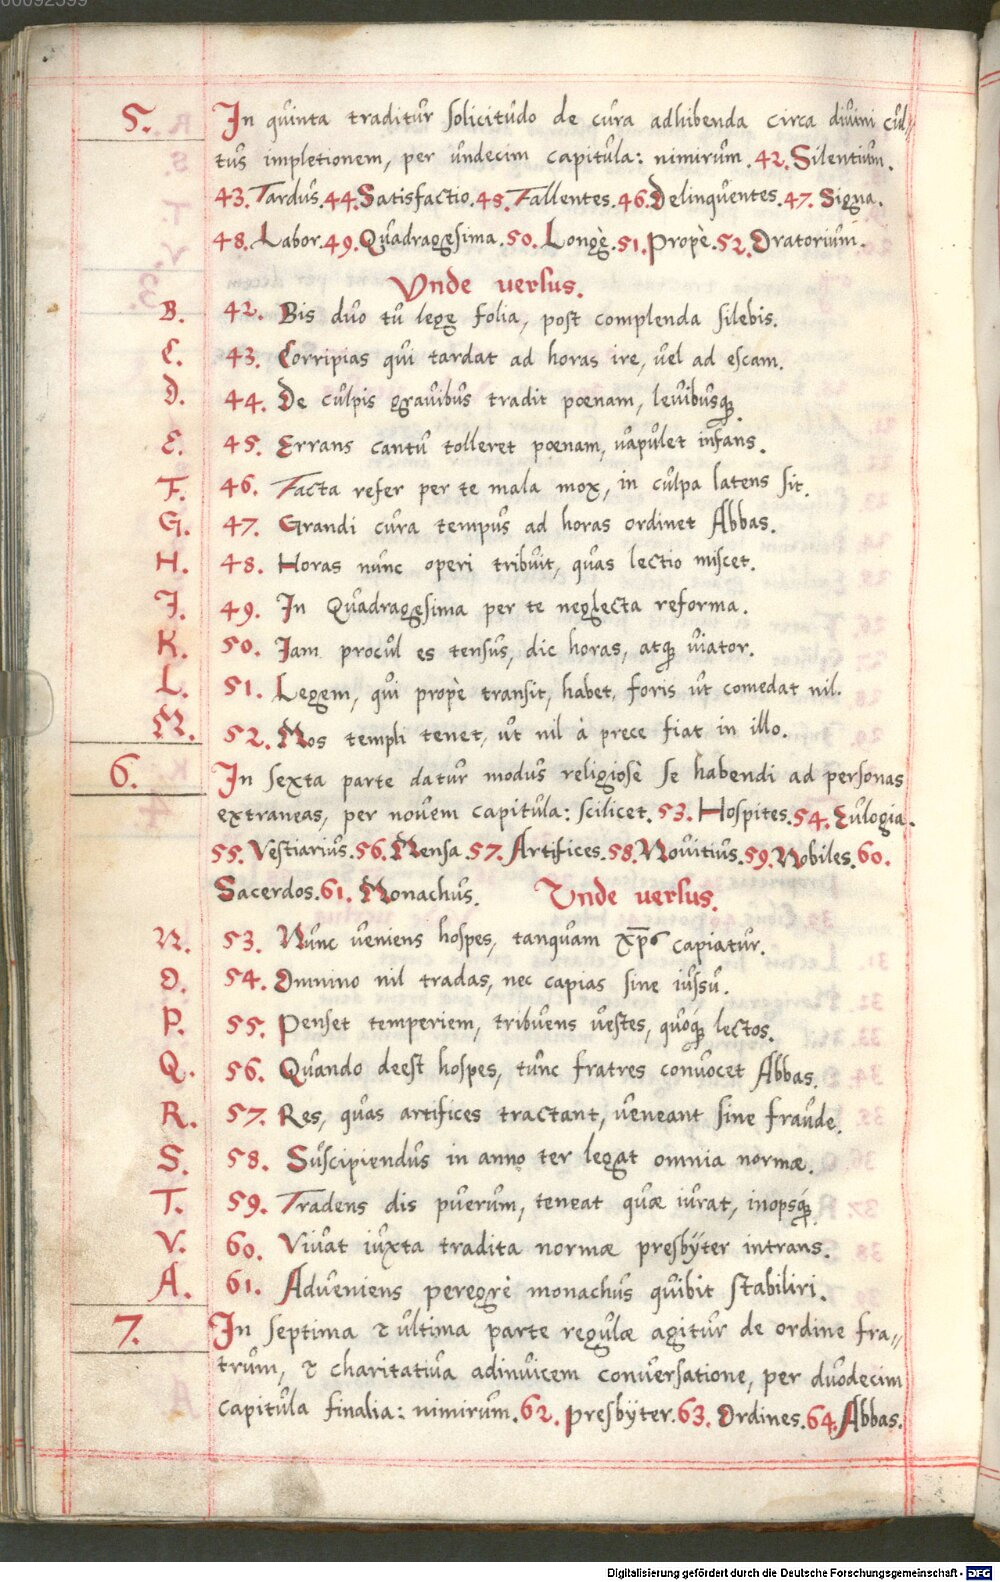 00092599
5. In quinta traditur solicitudo de cura adhibenda circa divini cul//
tus impletionem, per undecim capitula: nimirum. 42. Silentium.
43. Tardus. 44. Satisfactio. 45. Fallentes. 46. Delinquentes. 47. Signa.
48. Labor. 49. Quadragesima. 50. Longè. 51. Propè. 52. Oratorium.
Vnde versus.
B. 42. Bis duo tu lege folia, post complenda silebis.
C. 43. Corripias qui tardat ad horas ire, vel ad escam.
D. 44. De culpis gravibus tradit poenam, levibusqꝫ.
E. 45. Errans cantu tolleret poenam, vapulet infans.
F. 46. Facta refer per te mala mox, in culpa latens sit.
G. 47. Grandi cura tempus ad horas ordinet Abbas.
H. 48. Horas nunc operi tribuit, quas lectio miscet.
I. 49. In Quadragesima per te neglecta reforma.
K. 50. Iam procul es tensus, dic horas, atqꝫ viator.
L. 51. Legem, qui propè transit, habet, foris ut comedat nil.
M. 52. Mos templi tenet, ut nil à prece fiat in illo.
6. In sexta parte datur modus religiosè se habendi ad personas
extraneas, per novem capitula: scilicet. 53. Hospites. 54. Eulogia.
55. Vestiarius. 56. Mensa. 57. Artifices. 58. Novitius. 59. Nobiles. 60.
Sacerdos. 61. Monachus. Vnde versus.
N. 53. Nunc veniens hospes, tanquam xp̅s capiatur.
O. 54. Omnino nil tradas, nec capias sine iussu.
P. 55. Penset temperiem, tribuens vestes, quoqꝫ lectos.
Q. 56. Quando deest hospes, tunc fratres convocet Abbas.
R. 57. Res, quas artifices tractant, veneant sine fraude.
S. 58. Suscipiendus in anno ter legat omnia normæ.
T. 59. Tradens dis puerum, teneat quæ iurat, inopsqꝫ.
V. 60. Vivat iuxta tradita normæ presbÿter intrans.
A. 61. Adveniens peregrè monachus quibit stabiliri.
7. In septima & ultima parte regulæ agitur de ordine fra//
trum, & charitativa adinvicem conversatione, per duodecim
capitula finalia: nimirum. 62. Presbÿter. 63. Ordines. 64. Abbas.
Digitalisierung gefördert durch die Deutsche Forschungsgemeinschaft - DFG